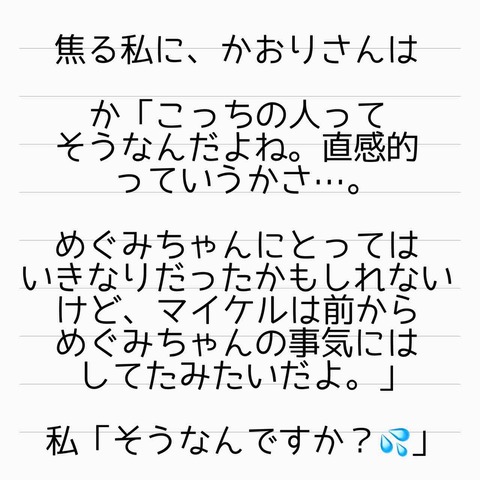 焦る私に、かおりさんは
か「こっちの人って
そうなんだよね。直感的
っていうかさ…。
めぐみちゃんにとっては
いきなりだったかもしれない
けど、マイケルは前から
めぐみちゃんの事気には
してたみたいだよ。」
私「そうなんですか？💦」